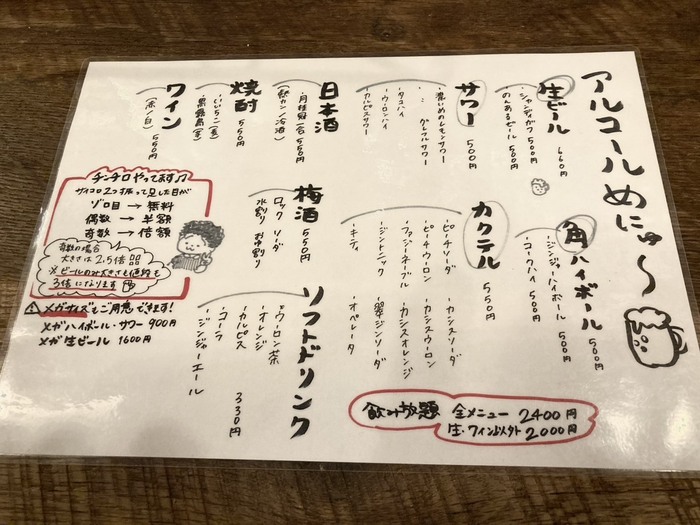 アルコールめにゅ〜
生ビール 660円
・シャンディガフ 500円
・のんあるビール 500円
角ハイボール 500円
・ジンジャーハイボール 500円
・コークハイ 500円
サワー 500円
・濃いめのレモンサワー
・〃 グレフルサワー
・タコハイ
・ウーロンハイ
・カルピスサワー
カクテル 550円
・ピーチソーダ
・ピーチウーロン
・ファジーネーブル
・ジントニック
・キティ
・カシスソーダ
・カシスウーロン
・カシスオレンジ
・翠ジンソーダ
・オペレータ
日本酒
・月桂冠 一合 550円
(熱カン/冷酒)
梅酒 550円
ロック ソーダ
水割り お湯割り
ソフトドリンク
・ウーロン茶
・オレンジ
・カルピス 330円
・コーラ
・ジンジャーエール
焼酎 550円
・いいちこ(麦)
・黒霧島(芋)
ワイン
(赤/白) 550円
チンチロやってます♪
サイコロ2つ振って足した目が
ゾロ目 → 無料
偶数 → 半額
奇数 → 倍額
奇数の場合
大きさは2.5倍
※ビールのみ大きさも値段も
3倍になります
⚠メガサイズもご用意できます!
メガハイボール・サワー 900円
メガ生ビール 1600円
飲み放題 全メニュー 2400円
生・ワイン以外 2000円